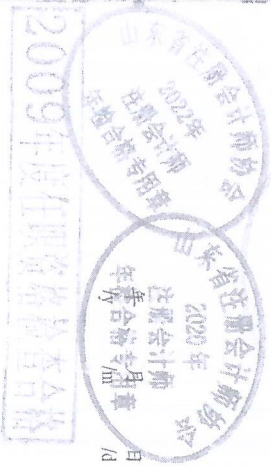 山东省注册会计师协会
2022年
注册会计师
年检合格专用章
山东省注册会计师协会
2020年
注册会计师
年检合格专用章
年 月 日
/y /m /d
2009年度任职资格检查合格